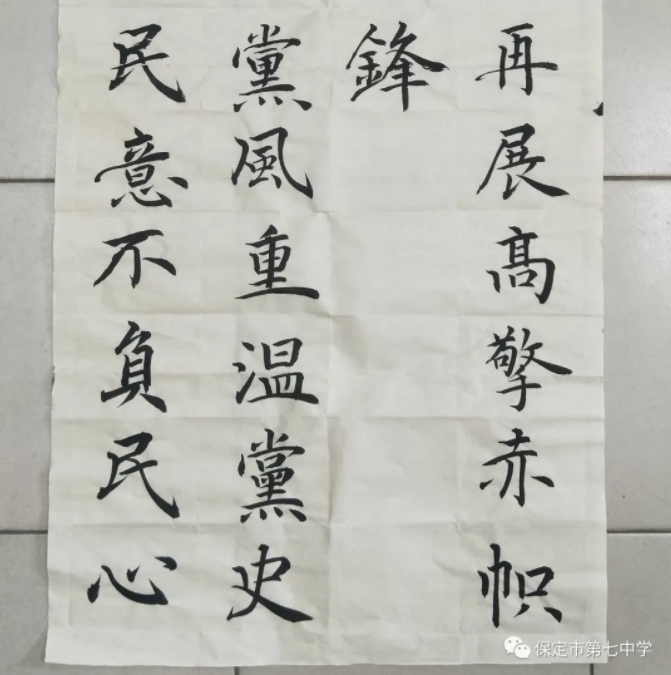 再展髙擎赤帜
鋒
黨風重温黨史
民意不負民心
保定市第七中学